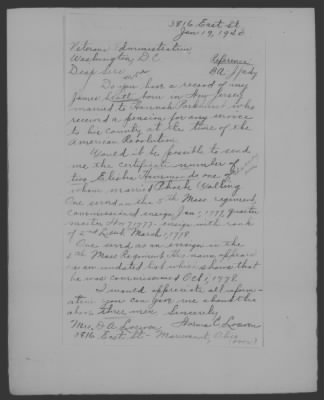 1816 East St.
Jan 19, 19
Veterans Administration
Washington, D.C. Reference
Dear Sirs BA
Do you have a record of any
James Scott born in New Jersey
married to Hannah who
received a pension for any service
to his country at the time of the
American Revolution.
Would it be possible to send
me the certificate number of
two Elisha one of
whom married Phoebe
One served in the 5th Mass regiment,
Commissioned ensign Jan 1, 1777, quarter
master Nov 1777 - ensign with rank
of 2nd Lieut. March 1778.
One served as an ensign in the
6th Mass Regiment this name appears
on an undated but which shows that
he was commissioned Oct 1, 1778.
I would appreciate all inform-
ation you can give me about the
above three men. Sincerely,
Mrs. D. A. C.
1816 East St - Ohio
(over)